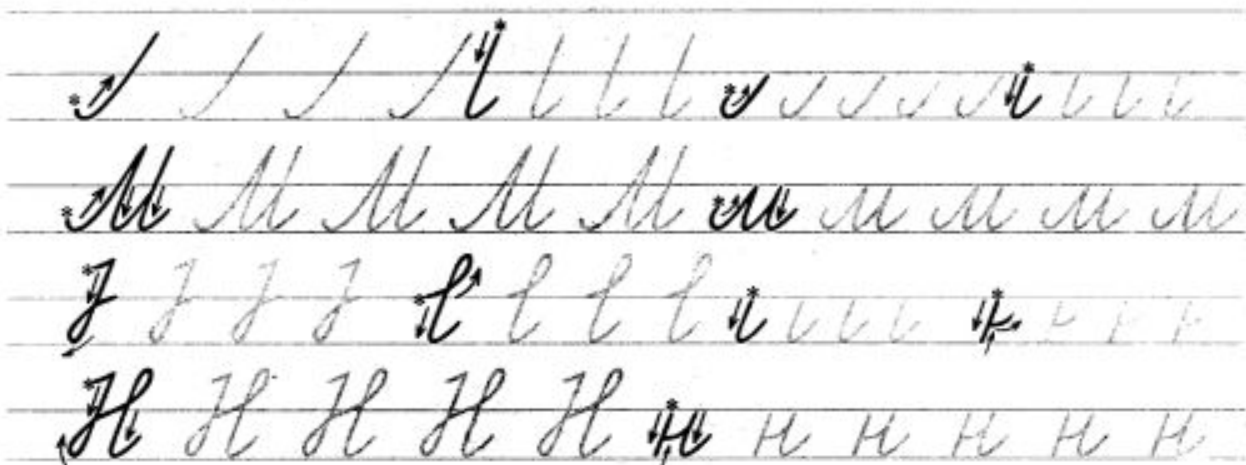 М М М М М м м м м м
Н Н Н Н Н н н н н н